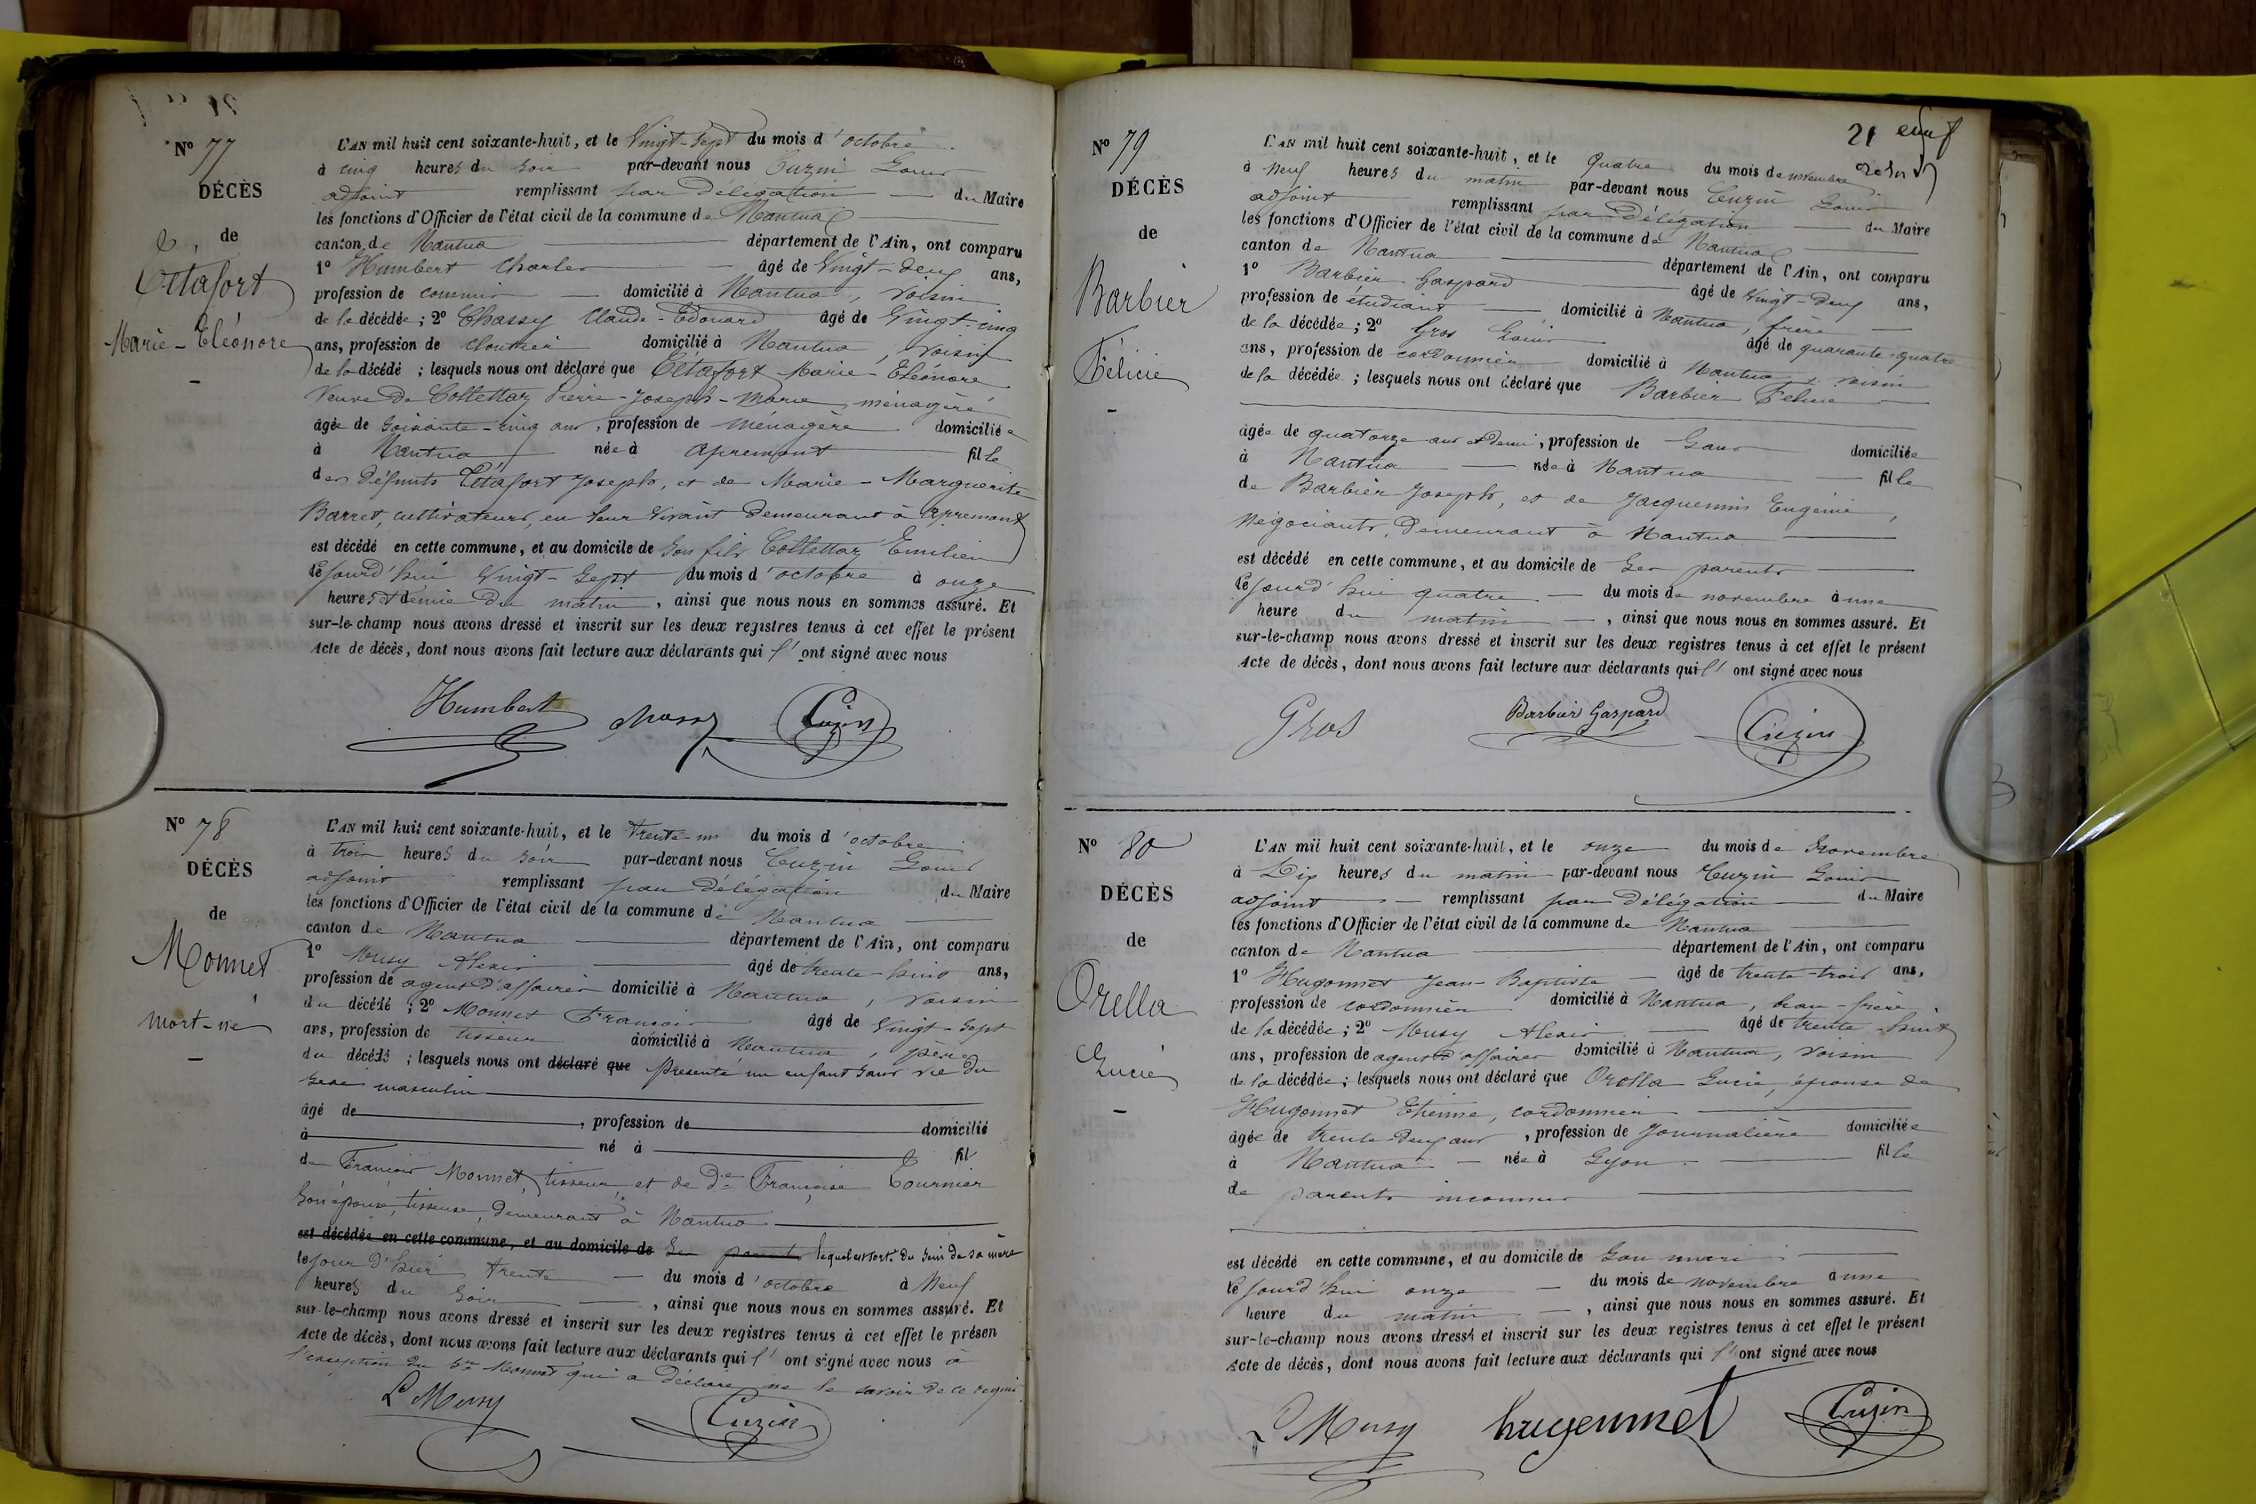 N° 77
DÉCÈS
de
Tétafort
Marie-Eléonore
L'AN mil huit cent soixante-huit, et le Vingt-Sept du mois d'octobre
à cinq heures du soir par-devant nous Cuzin Louis
adjoint remplissant par Délégation du Maire
les fonctions d'Officier de l'état civil de la commune de Nantua
canton de Nantua département de l'Ain, ont comparu
1° Humbert Charles âgé de Vingt-deux ans,
profession de commis domicilié à Nantua, voisin
de la décédée; 2° Chassy Claude-Edouard âgé de Vingt-cinq
ans, profession de cloutier domicilié à Nantua, voisin
de la décédé; lesquels nous ont déclaré que Tétafort Marie-Eléonore
Veuve de Collettaz Pierre-Joseph-Marie ménagère
âgée de Soixante-cinq ans, profession de ménagère domiciliée
à Nantua née à Apremont fille
des défunts Tétafort Joseph, et de Marie-Marguerite
Barret, cultivateurs, en leur vivant demeurant à Apremont
est décédé en cette commune, et au domicile de Son fils Collettaz Emilien
cejourd'hui Vingt-Sept du mois d'octobre à onze
heures et demie du matin, ainsi que nous nous en sommes assuré. Et
sur-le-champ nous avons dressé et inscrit sur les deux registres tenus à cet effet le présent
Acte de décès, dont nous avons fait lecture aux déclarants qui l'ont signé avec nous
Humbert Chassy Cuzin
N° 78
DÉCÈS
de
Monnet
mort-né
L'AN mil huit cent soixante-huit, et le trente-un du mois d'octobre
à trois heures du soir par-devant nous Cuzin Louis
adjoint remplissant par délégation du Maire
les fonctions d'Officier de l'état civil de la commune de Nantua
canton de Nantua département de l'Ain, ont comparu
1° Musy Alexis âgé de trente-huit ans,
profession de agent d'affaires domicilié à Nantua, voisin
du décédé; 2° Monnet François âgé de Vingt-Sept
ans, profession de tisseur domicilié à Nantua, père
du décédé; lesquels nous ont déclaré que présenté un enfant sans vie du
sexe masculin
âgé de , profession de domicilié
à né à fil
de François Monnet, tisseur, et de De Françoise Tournier
Son épouse, tisseuse, demeurant à Nantua
est décédée en cette commune, et au domicile de Ses parents lequel est sorti du sein de sa mère
le jour d'hier trente du mois d'octobre à Neuf
heures du Soir, ainsi que nous nous en sommes assuré. Et
sur-le-champ nous avons dressé et inscrit sur les deux registres tenus à cet effet le présen
Acte de décès, dont nous avons fait lecture aux déclarants qui l'ont signé avec nous à
l'exception du Sr Monnet qui a déclaré ne le savoir de ce requis
Musy Cuzin
21
N° 79
DÉCÈS
de
Barbier
Félicie
L'AN mil huit cent soixante-huit, et le Quatre du mois de novembre
à Neuf heures du matin par-devant nous Cuzin Louis
adjoint remplissant par Délégation du Maire
les fonctions d'Officier de l'état civil de la commune de Nantua
canton de Nantua département de l'Ain, ont comparu
1° Barbier Gaspard âgé de Vingt-deux ans,
profession de étudiant domicilié à Nantua, frère
de la décédée; 2° Gros Louis âgé de quarante-quatre
ans, profession de cordonnier domicilié à Nantua, voisin
de la décédée; lesquels nous ont déclaré que Barbier Félicie
âgée de quatorze ans et demi, profession de Sans domiciliée
à Nantua née à Nantua fille
de Barbier Joseph, et de Jacquemin Eugénie,
Négociants, demeurant à Nantua
est décédé en cette commune, et au domicile de Ses parents
cejourd'hui quatre du mois de novembre à une
heure du matin, ainsi que nous nous en sommes assuré. Et
sur-le-champ nous avons dressé et inscrit sur les deux registres tenus à cet effet le présent
Acte de décès, dont nous avons fait lecture aux déclarants qui l'ont signé avec nous
Gros Barbier Gaspard Cuzin
N° 80
DÉCÈS
de
Orella
Lucie
L'AN mil huit cent soixante-huit, et le onze du mois de Novembre
à Dix heures du matin par-devant nous Cuzin Louis
adjoint remplissant par Délégation du Maire
les fonctions d'Officier de l'état civil de la commune de Nantua
canton de Nantua département de l'Ain, ont comparu
1° Hugonnet Jean-Baptiste âgé de trente-trois ans,
profession de cordonnier domicilié à Nantua, beau-frère
de la décédée; 2° Musy Alexis âgé de trente-huit
ans, profession de agent d'affaires domicilié à Nantua, voisin
de la décédée; lesquels nous ont déclaré que Orella Lucie, épouse de
Hugonnet Etienne, cordonnier
âgée de trente-deux ans, profession de Journalière domiciliée
à Nantua née à Lyon fille
de parents inconnus
est décédé en cette commune, et au domicile de Son mari
cejourd'hui onze du mois de novembre à une
heure du matin, ainsi que nous nous en sommes assuré. Et
sur-le-champ nous avons dressé et inscrit sur les deux registres tenus à cet effet le présent
Acte de décès, dont nous avons fait lecture aux déclarants qui l'ont signé avec nous
Musy hugonnet Cuzin